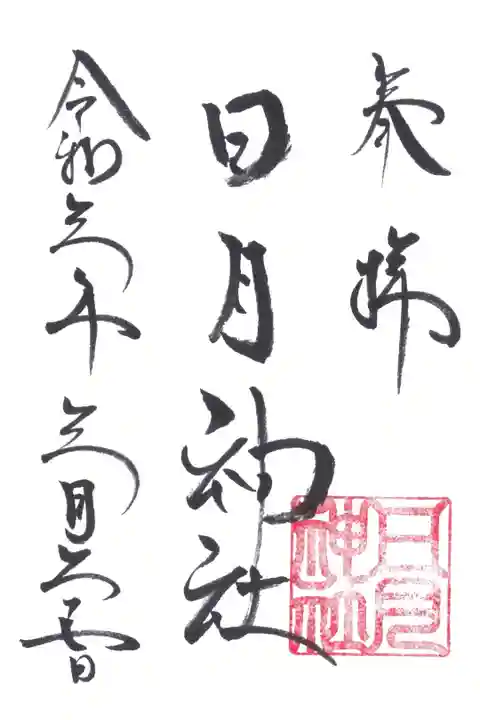 奉拝
日月神社
令和六年六月 日
日月
神社